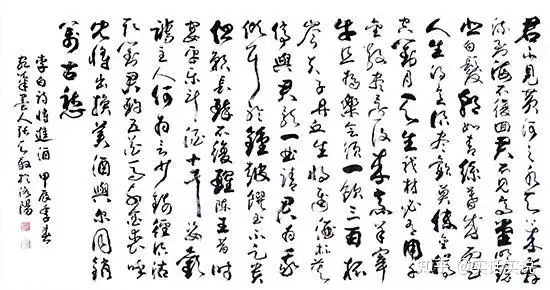 君不見黃河之水天上來奔
流到海不復回君不見高堂明鏡
悲白髮朝如青絲暮成雪
人生得意須盡歡莫使金樽
空對月天生我材必有用千
金散盡還復來烹羊宰
牛且為樂會須一飲三百杯
岑夫子丹丘生將進酒杯莫
停與君歌一曲請君為我
傾耳聽鐘鼓饌玉不足貴
但願長醉不復醒陳王昔時
宴平樂斗酒十千恣歡
謔主人何為言少錢徑須沽
取對君酌五花馬千金裘呼
兒將出換美酒與爾同銷
萬古愁
李白詩將進酒 甲辰季春
人張 敬於洛陽
知乎